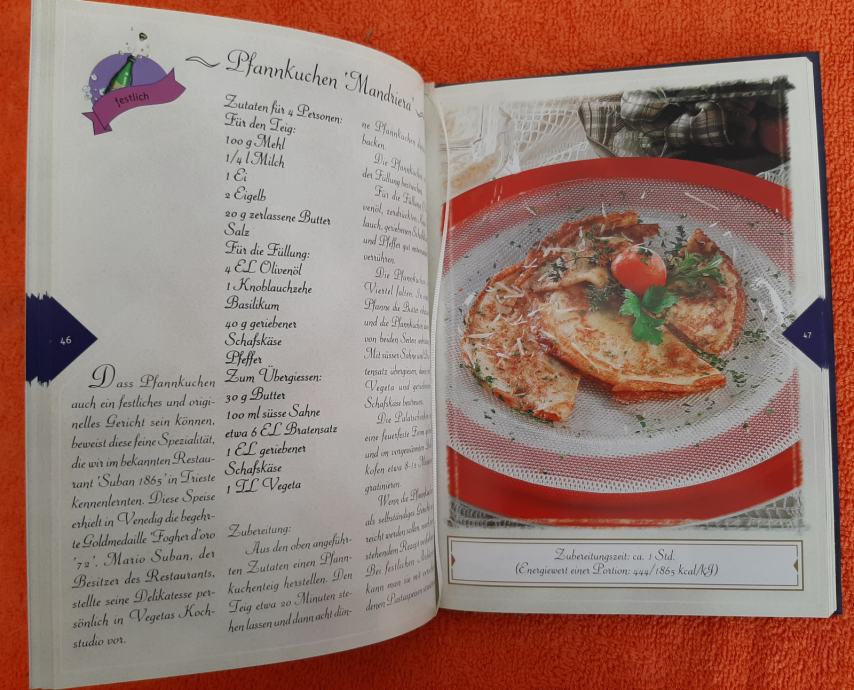 festlich
Pfannkuchen 'Mandriera'
Dass Pfannkuchen
auch ein festliches und origi-
nelles Gericht sein können,
beweist diese feine Spezialität,
die wir im bekannten Restau-
rant 'Suban 1865' in Trieste
kennenlernten. Diese Speise
erhielt in Venedig die begehr-
te Goldmedaille 'Fogher d'oro
'72'. Mario Suban, der
Besitzer des Restaurants,
stellte seine Delikatesse per-
sönlich in Vegetas Koch-
studio vor.
46
Zutaten für 4 Personen:
Für den Teig:
100 g Mehl
1/4 l Milch
1 Ei
2 Eigelb
20 g zerlassene Butter
Salz
Für die Füllung:
4 EL Olivenöl
1 Knoblauchzehe
Basilikum
40 g geriebener
Schafskäse
Pfeffer
Zum Übergiessen:
30 g Butter
100 ml süsse Sahne
etwa 6 EL Bratensatz
1 EL geriebener
Schafskäse
1 TL Vegeta
Zubereitung:
Aus den oben angeführ-
ten Zutaten einen Pfann-
kuchenteig herstellen. Den
Teig etwa 20 Minuten ste-
hen lassen und dann acht dün-
ne Pfannkuchen
backen.
Die Pfannkuchen
der Füllung bestreichen.
Für die Füllung
venöl, zerdrückten
lauch, geriebenen
und Pfeffer gut
verrühren.
Die Pfannkuchen
Viertel falten. In
Pfanne die Butter
und die Pfannkuchen
von beiden Seiten
Mit süsser Sahne und
tensatz übergiessen,
Vegeta und
Schafskäse bestreuen.
Die Palatschinken
eine feuerfeste Form
und im vorgewärmten
kofen etwa 8-12
gratinieren.
Wenn die Pfannkuchen
als selbständiges
reicht werden sollen,
stehendem Rezept
Bei festlichen
kann man sie mit
denen
47
Zubereitungszeit: ca. 1 Std.
(Energiewert einer Portion: 444/1865 kcal/kJ)